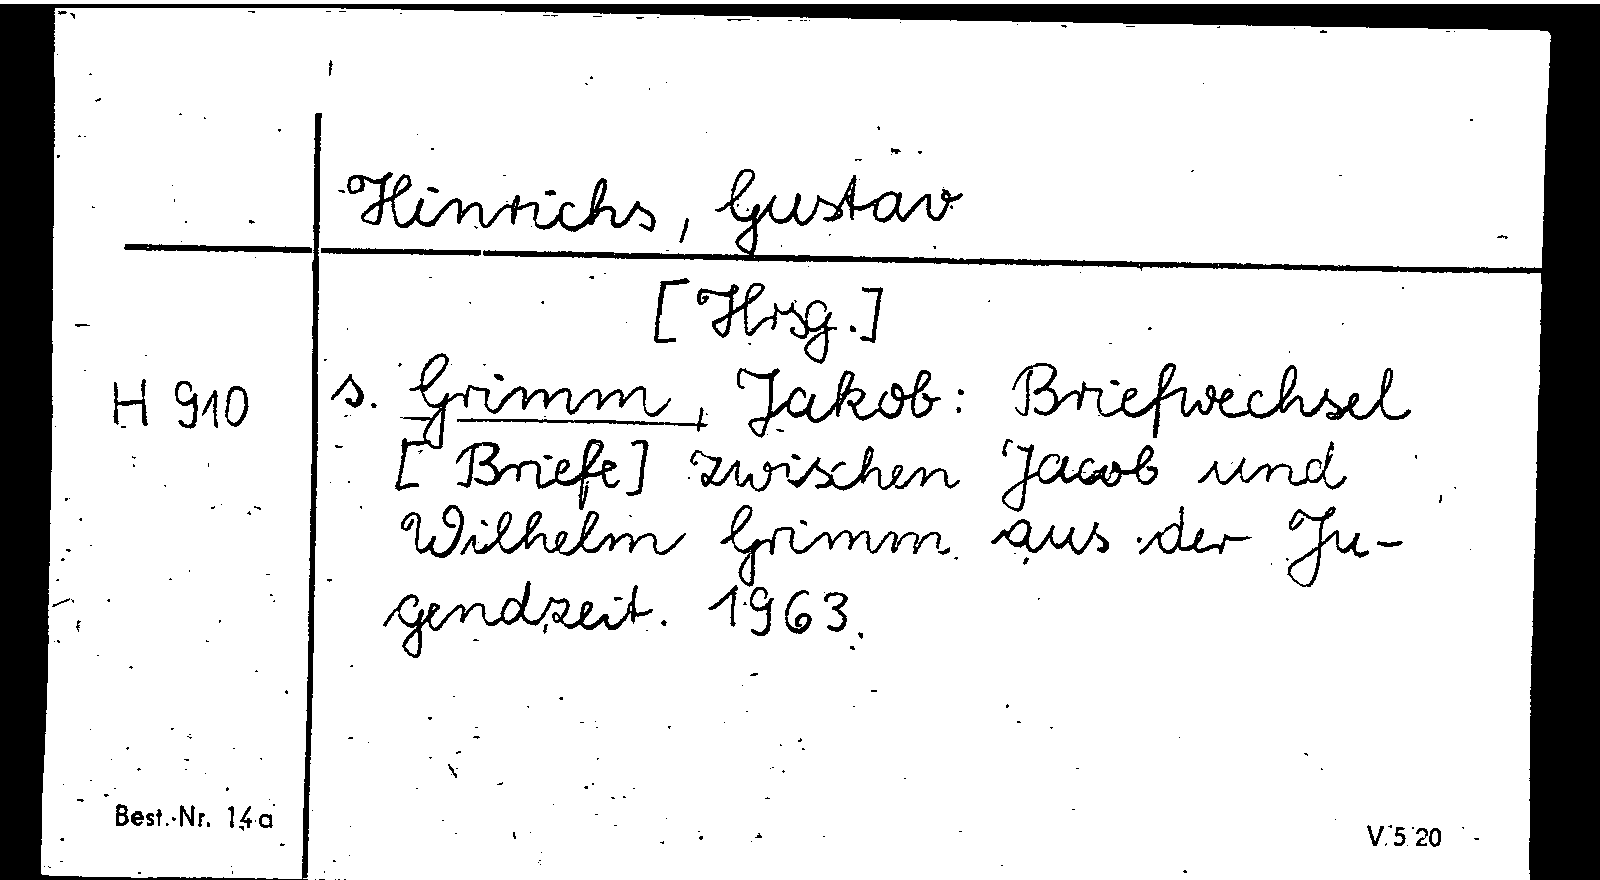 Hinrichs, Gustav
[Hrsg.]
H 910 s. Grimm, Jakob: Briefwechsel
[Briefe] zwischen Jacob und
Wilhelm Grimm aus der Ju-
gendzeit. 1963.
Best.-Nr. 14a
V 5 20